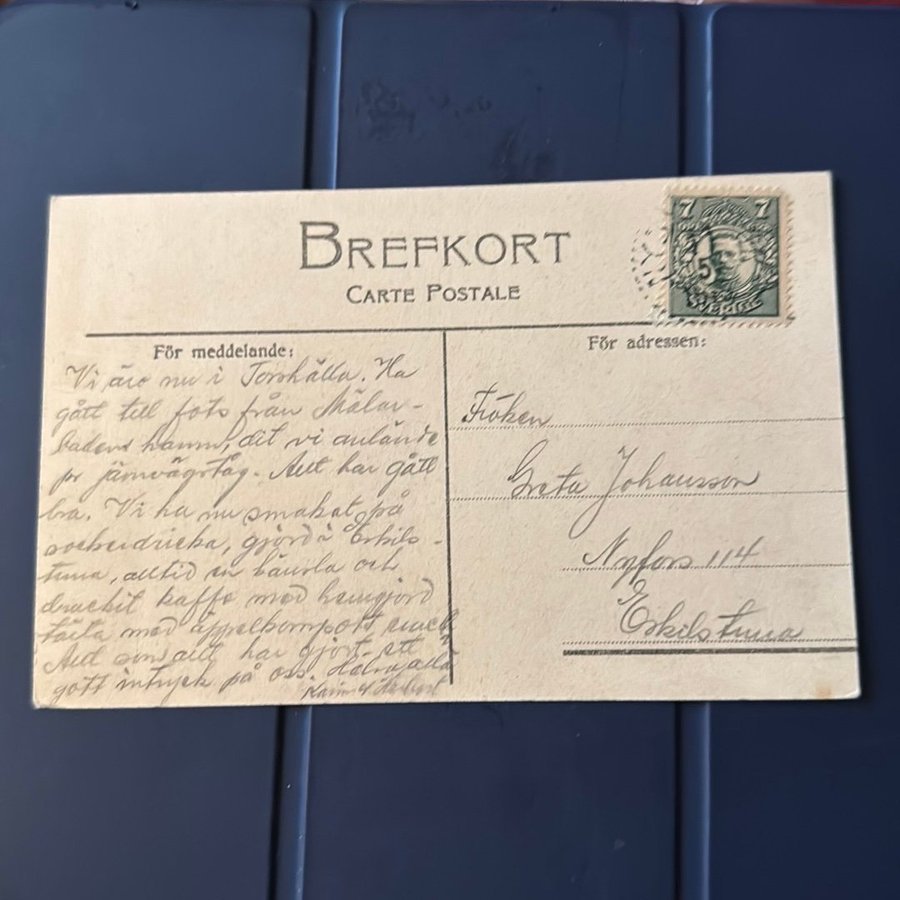 BREFKORT
CARTE POSTALE
7 7
5
SVERIGE
För meddelande:
Vi äro nu i Torshälla. Ha
gått till fots från Mälar-
badens hamn, dit vi anlände
pr järnvägståg. Allt har gått
bra. Vi ha nu smakat på
sockerdricka, gjord i Eskils-
tuna, alltid en bärvla och
druckit kaffe med hemgjord
tårta med äppelkompott emell
Allt som allt har gjort ett
gott intryck på oss. Hälsa alla
Karin o Herbert
För adressen:
Fröken
Greta Johansson
Nyfors 114
Eskilstuna